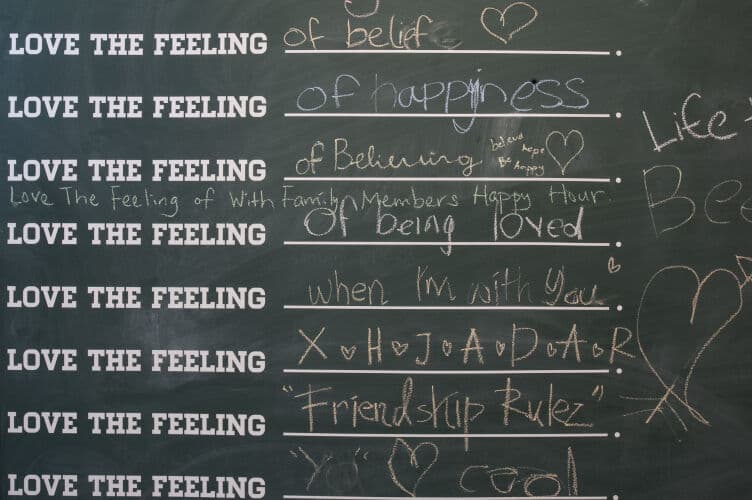 LOVE THE FEELING of belief ♡.
LOVE THE FEELING of happiness.
LOVE THE FEELING of Believing believe hope Be happy ♡.
Love The Feeling of With Family Members Happy Hour.
LOVE THE FEELING Of being loved.
LOVE THE FEELING when I'm with You ♡.
LOVE THE FEELING X ♡ H ♡ J ♡ A ♡ D ♡ A ♡ R.
LOVE THE FEELING "Friendship Rulez".
LOVE THE FEELING ♡ cool.
Life-
Be